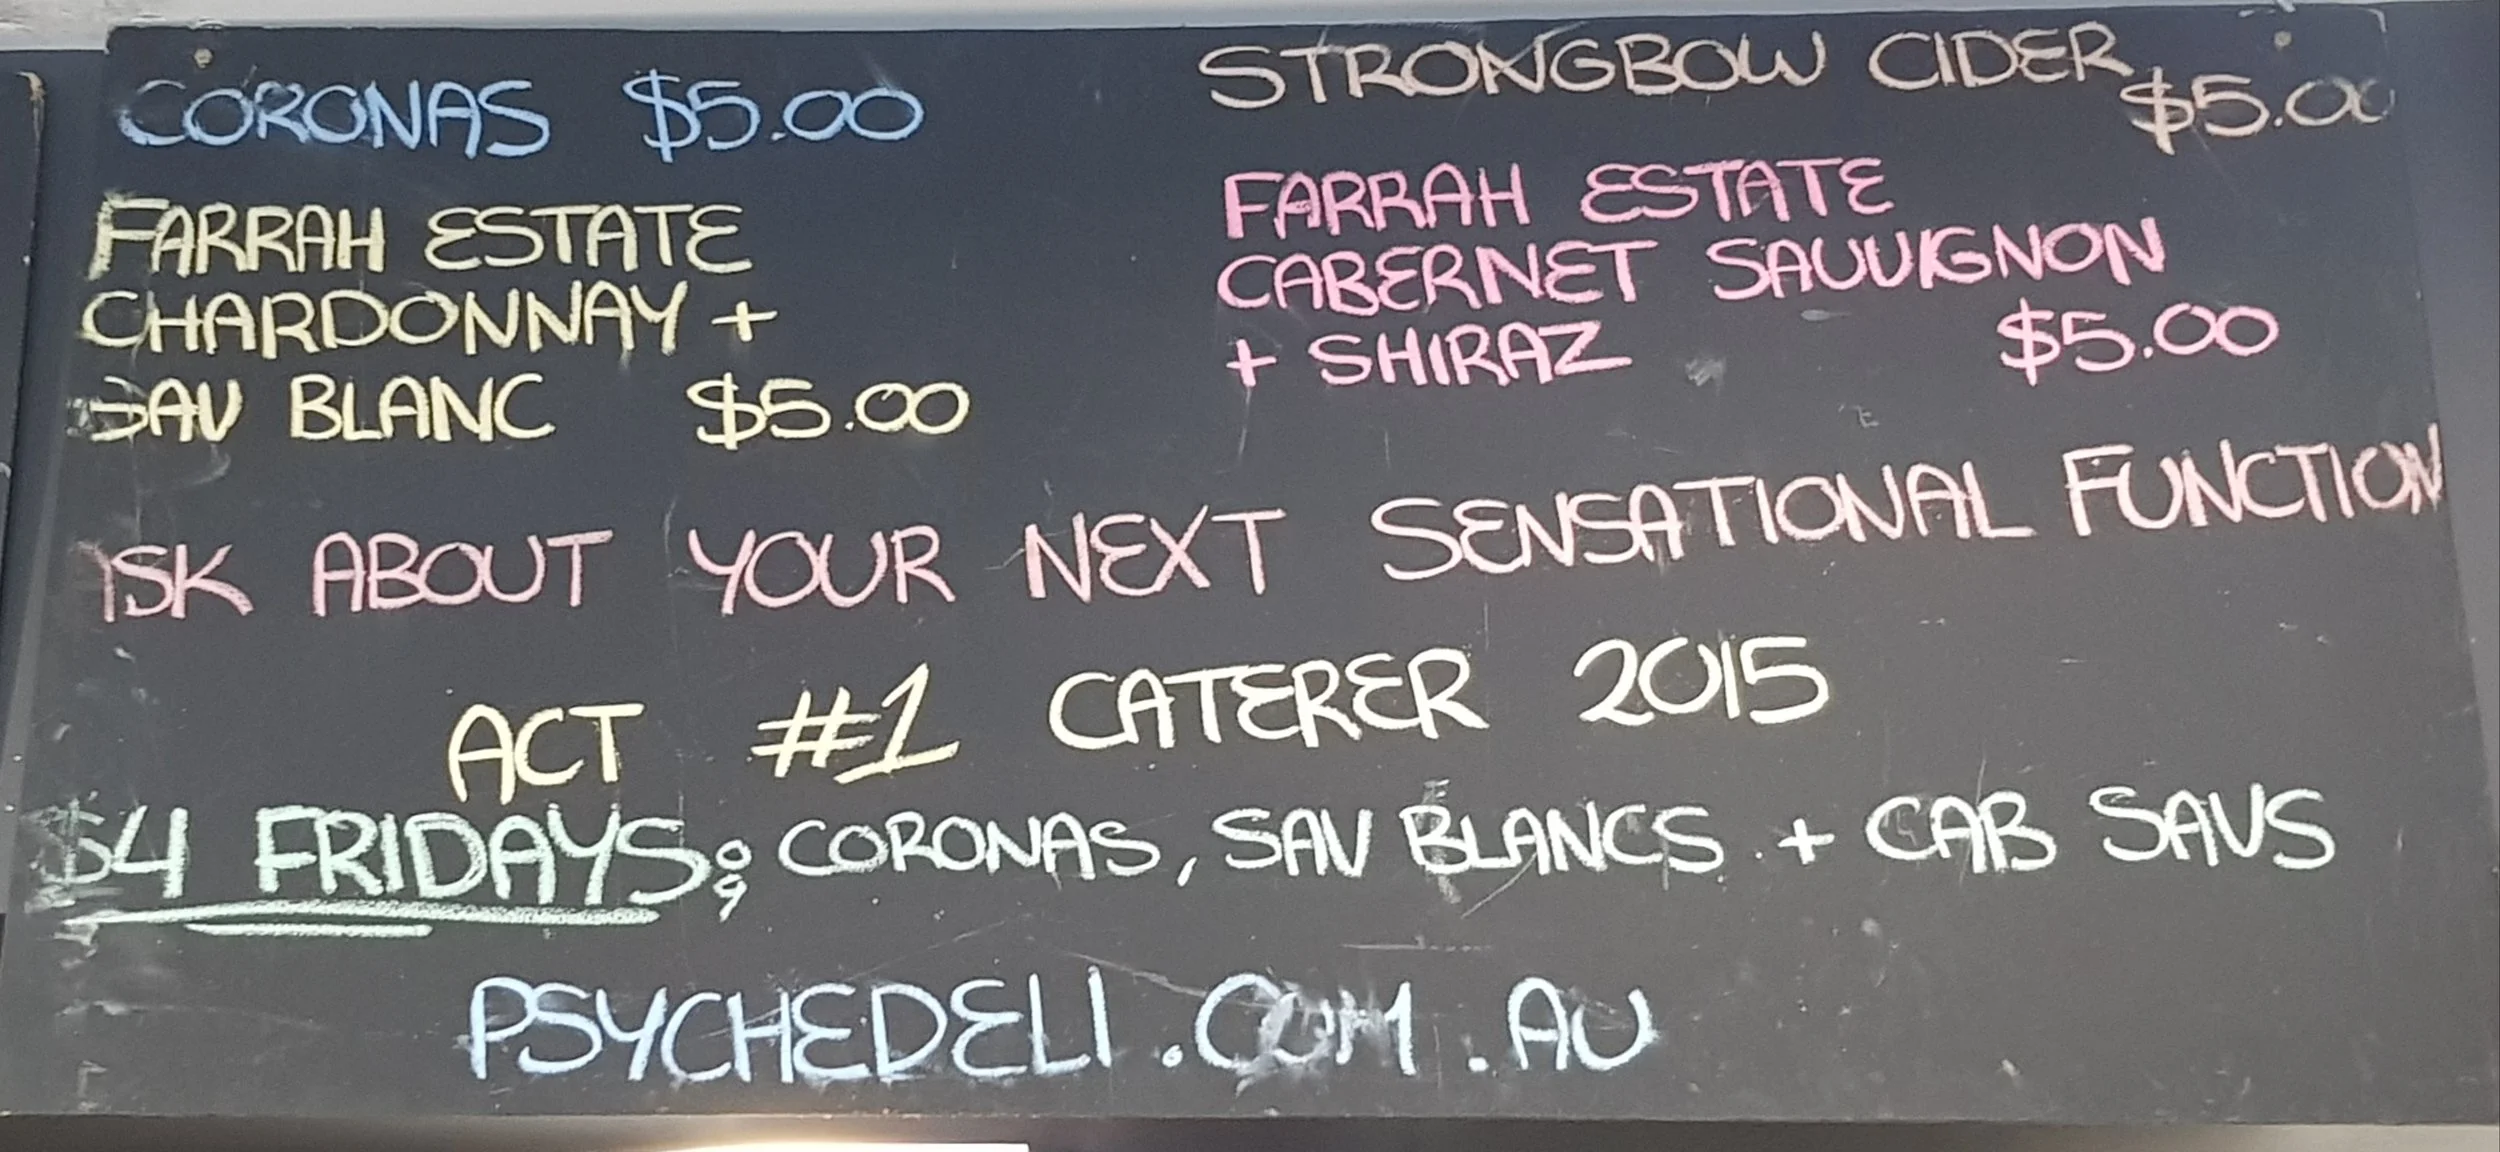 CORONAS $5.00
FARRAH ESTATE
CHARDONNAY +
SAV BLANC $5.00
STRONGBOW CIDER
$5.00
FARRAH ESTATE
CABERNET SAUVIGNON
+ SHIRAZ $5.00
ASK ABOUT YOUR NEXT SENSATIONAL FUNCTION
ACT #1 CATERER 2015
$4 FRIDAYS; CORONAS, SAV BLANCS + CAB SAVS
PSYCHEDELI.COM.AU